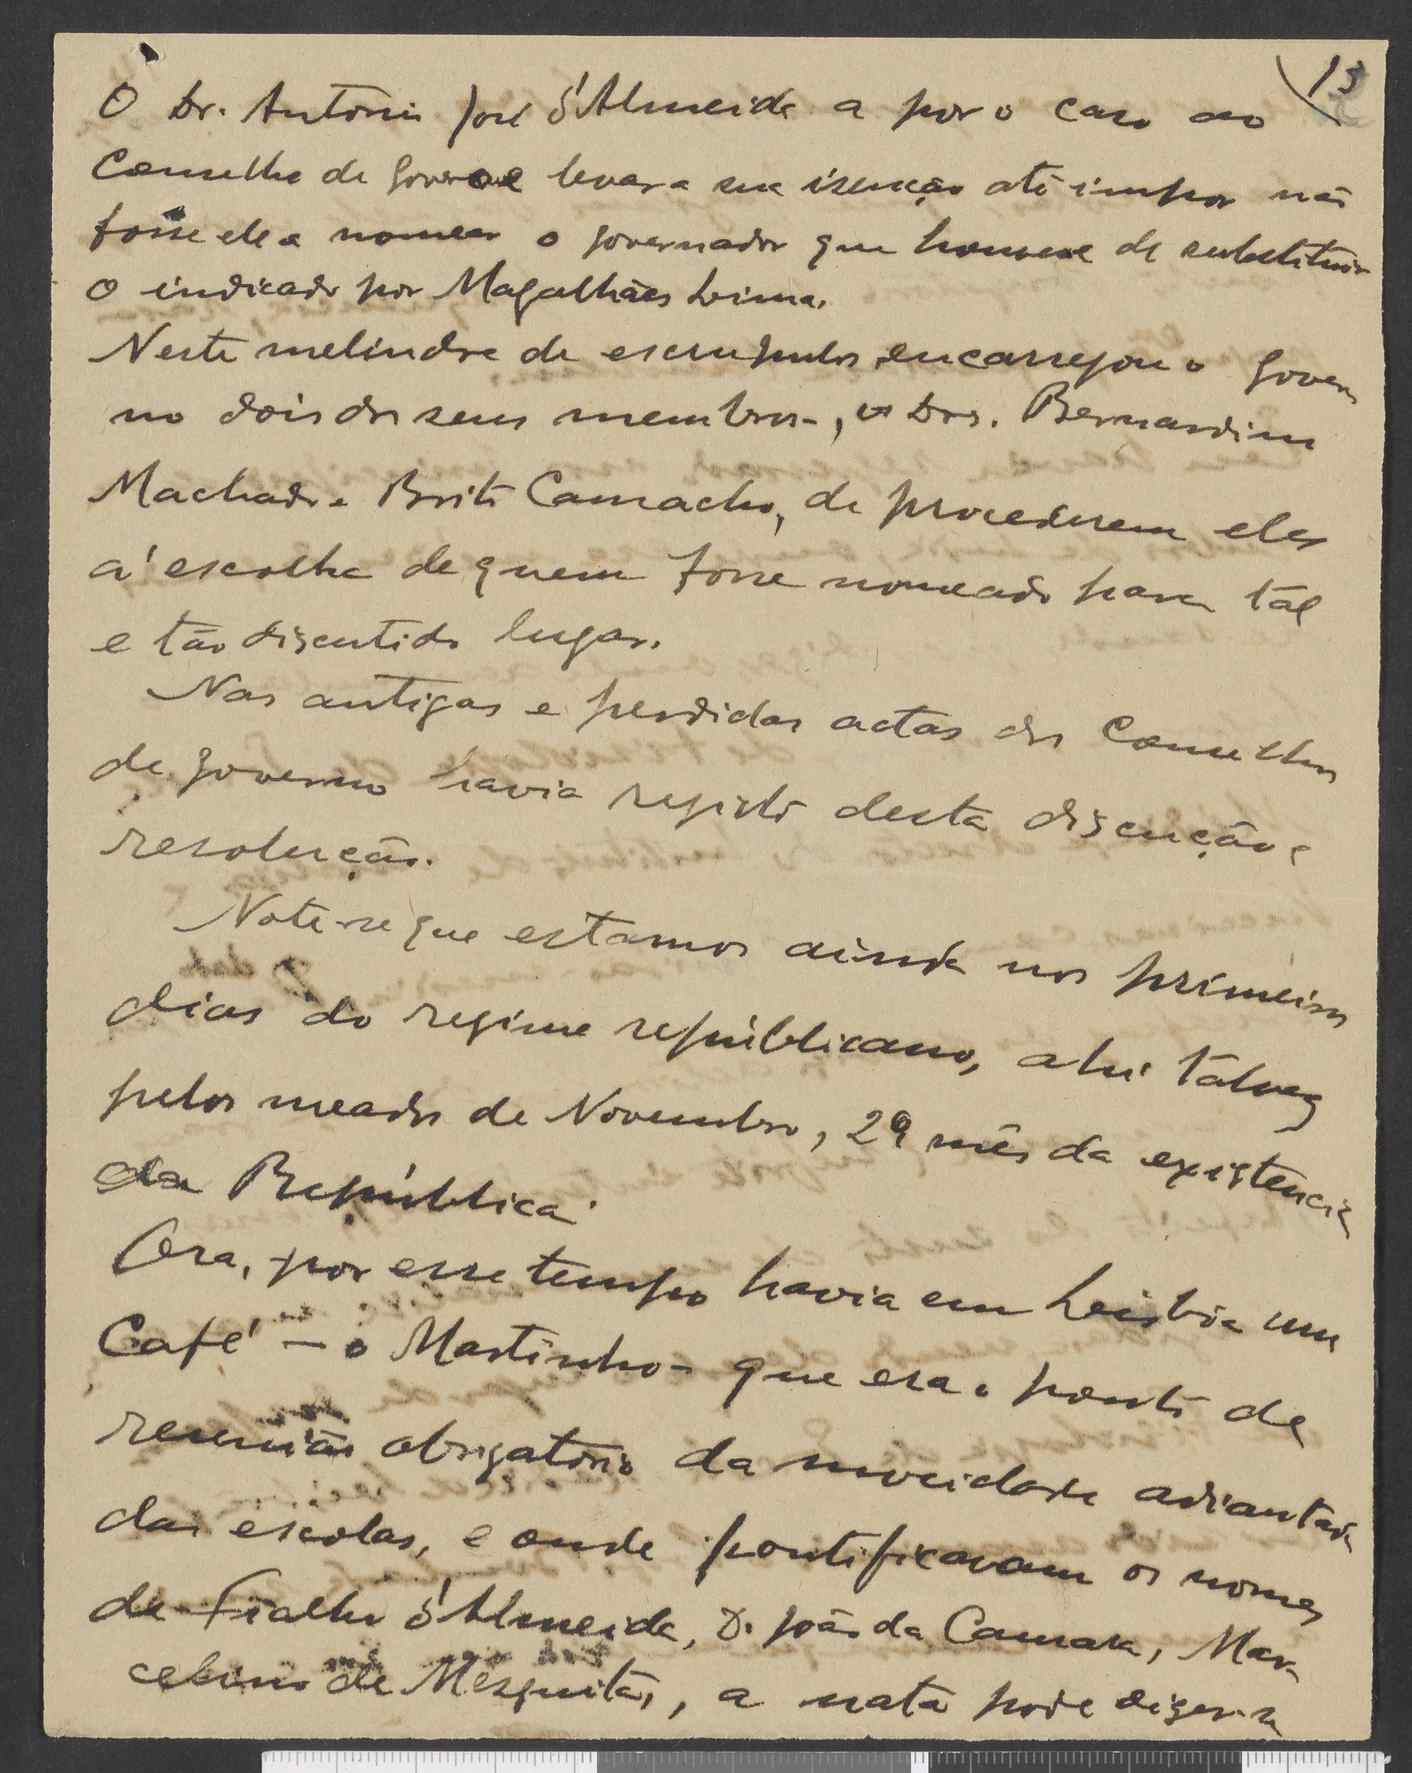 13
O Dr. António José d'Almeida a por o caso ao
Conselho de Governo e levar a sua isenção até impor não
fosse ele a nomear o governador que houvesse de substituir
o indicado por Magalhães Lima.
Neste melindre de escrupulos, encarregou o Gover
no dois dos seus membros, os Drs. Bernardino
Machado e Brito Camacho, de procederem eles
á escolha de quem fosse nomeado para tál
e tão discutido lugar.
Nas antigas e perdidas actas dos Conselhos
de Governo havia registo desta discução e
resolução.
Note-se que estamos ainda nos primeiros
dias do regime repúblicano, ahi tálvez
pelos meados de Novembro, 2º mês da existência
da República.
Ora, por esse tempo havia em Lisbôa um
Café - o Martinho - que era o ponto de
reunião obrigatório da mocidade adiantada
das escolas, e onde pontificavam os nomes
de Fialho d'Almeida, D. João da Camara, Mar-
celino de Mesquita, a nata pode dizer-se